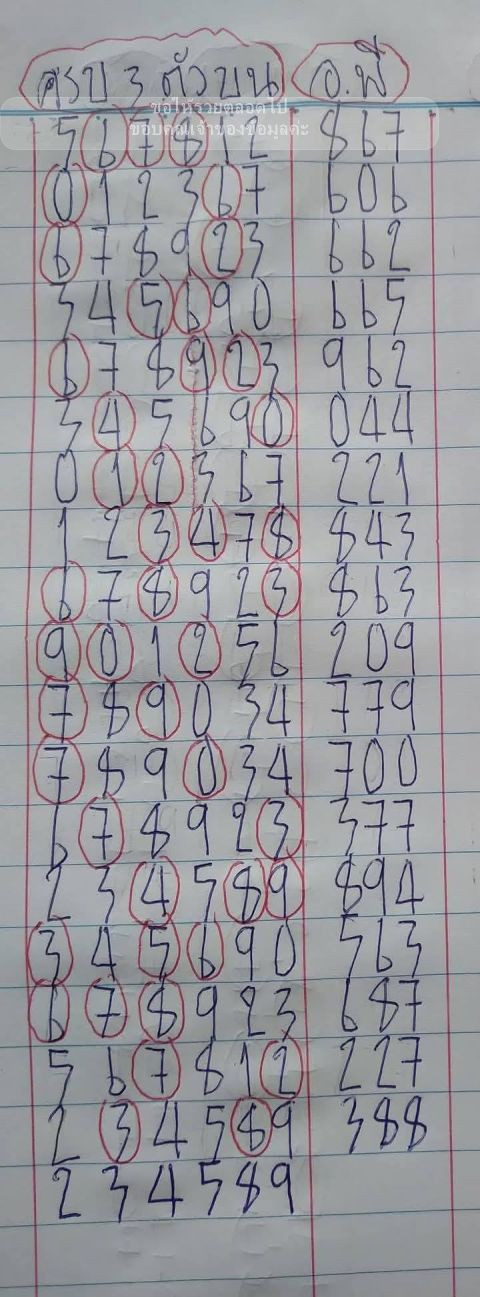 ครบ 3 ตัวบน อ.พี
ขอให้รวยตลอดไป
ขอบคุณเจ้าของข้อมูลค่ะ
5 6 7 8 1 2 867
0 1 2 3 6 7 606
6 7 8 9 2 3 662
3 4 5 6 9 0 665
6 7 8 9 2 3 962
3 4 5 6 9 0 044
0 1 2 3 6 7 221
1 2 3 4 7 8 843
6 7 8 9 2 3 863
9 0 1 2 5 6 209
7 8 9 0 3 4 779
7 8 9 0 3 4 700
6 7 8 9 2 3 377
2 3 4 5 8 9 894
3 4 5 6 9 0 563
6 7 8 9 2 3 687
5 6 7 8 1 2 227
2 3 4 5 8 9 388
2 3 4 5 8 9